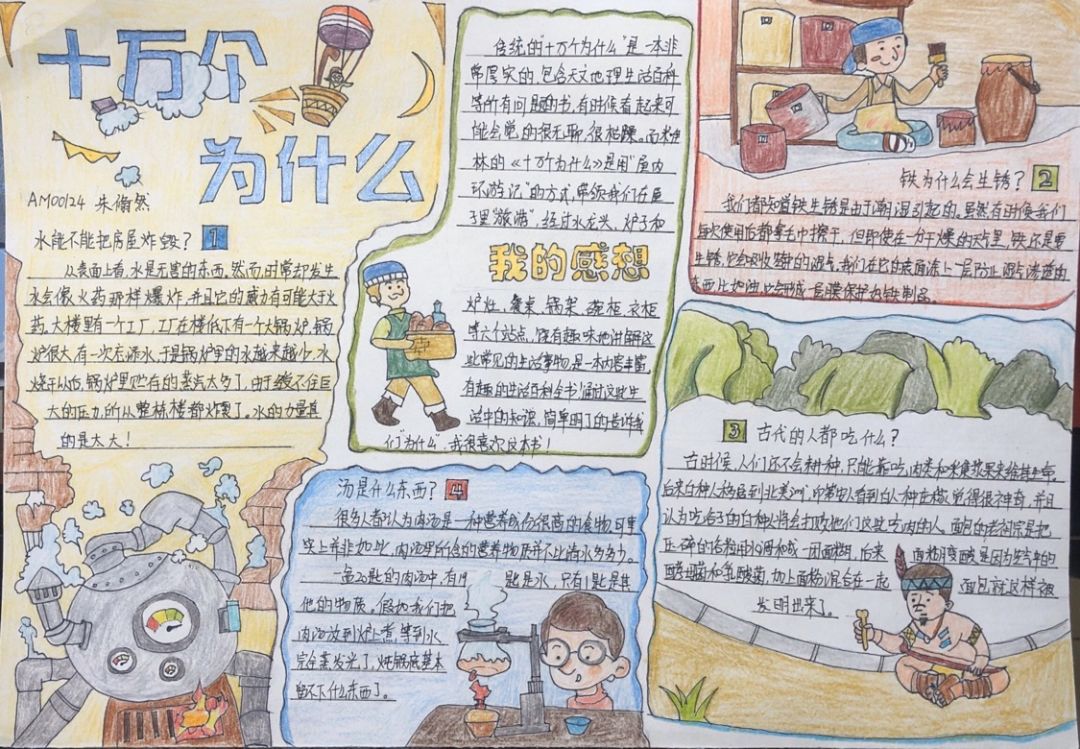 十万个
为什么
AM00124 朱倫然
水能不能把房屋炸毁? 1
从表面上看,水是无害的东西,然而,时常却发生
水会像火药那样爆炸,并且它的威力有可能大于火
药。大楼里有一个工厂,工厂在楼低下有一个大锅炉,锅
炉很大,有一次忘添水,于是锅炉里的水越来越少,水
烧干以后,锅炉里贮存的蒸汽太多了,由于缓不住巨
大的压力,所从整栋楼都炸毁了。水的力量真
的是太大!
传统的"十万个为什么"是一本非
常厚实的,包含天文地理生活百科
等所有问题的书,有时候看起来可
能会觉的很无聊,很枯躁。而米伊
林的《十万个为什么》是用"屋内
环游记"的方式,带领我们在屋
子里"旅游",经过水龙头、炉子和
我的感想
炉灶、餐桌、锅架、碗柜、衣柜
等六个站点,饶有趣味地讲解这
些常见的生活事物,是一本内容丰富,
有趣的生活百科全书!通过这些生
活中的知识,简单明了的告诉我
们"为什么",我很喜欢这本书!
铁为什么会生锈? 2
我们都知道铁生锈是由于潮湿引起的。虽然有时候我们
每次使用后都拿毛巾擦干,但即使在一分干燥的天气里,铁还是要
生锈,它会吸收空气中的湿点,我们在它的表面涂上一层防止湿点渗透的
东西比如油,比如碱一层膜保护为铁制品。
3 古代的人都吃什么?
古时候,人们还不会耕种,只能靠吃肉类和采集浆果来维持生命。
后来白种人移居到北美洲,印第安人看到白人种在栽,觉得很神奇,并且
认为吃谷子的白种人将会打败他们这些吃肉的人。面包的老祖宗是把
压碎的谷粉用水调和成一团面糊,后来 面粉月变酸是因为空气中的
酵母菌和乳酸菌,加上面粉混合在一起 面包就这样被
发明出来了。
汤是什么东西? 4
很多人都认为肉汤是一种营养成份很高的食物,可事
实上并非如此,肉汤里所含的营养物质并不比清水多多少。
一盘20匙的肉汤中,有19 匙是水,只有1匙是其
他的物质。假如我们把
肉汤放到炉上煮,等到水
完全蒸发光了,炖锅底基本
留不下什么东西了。